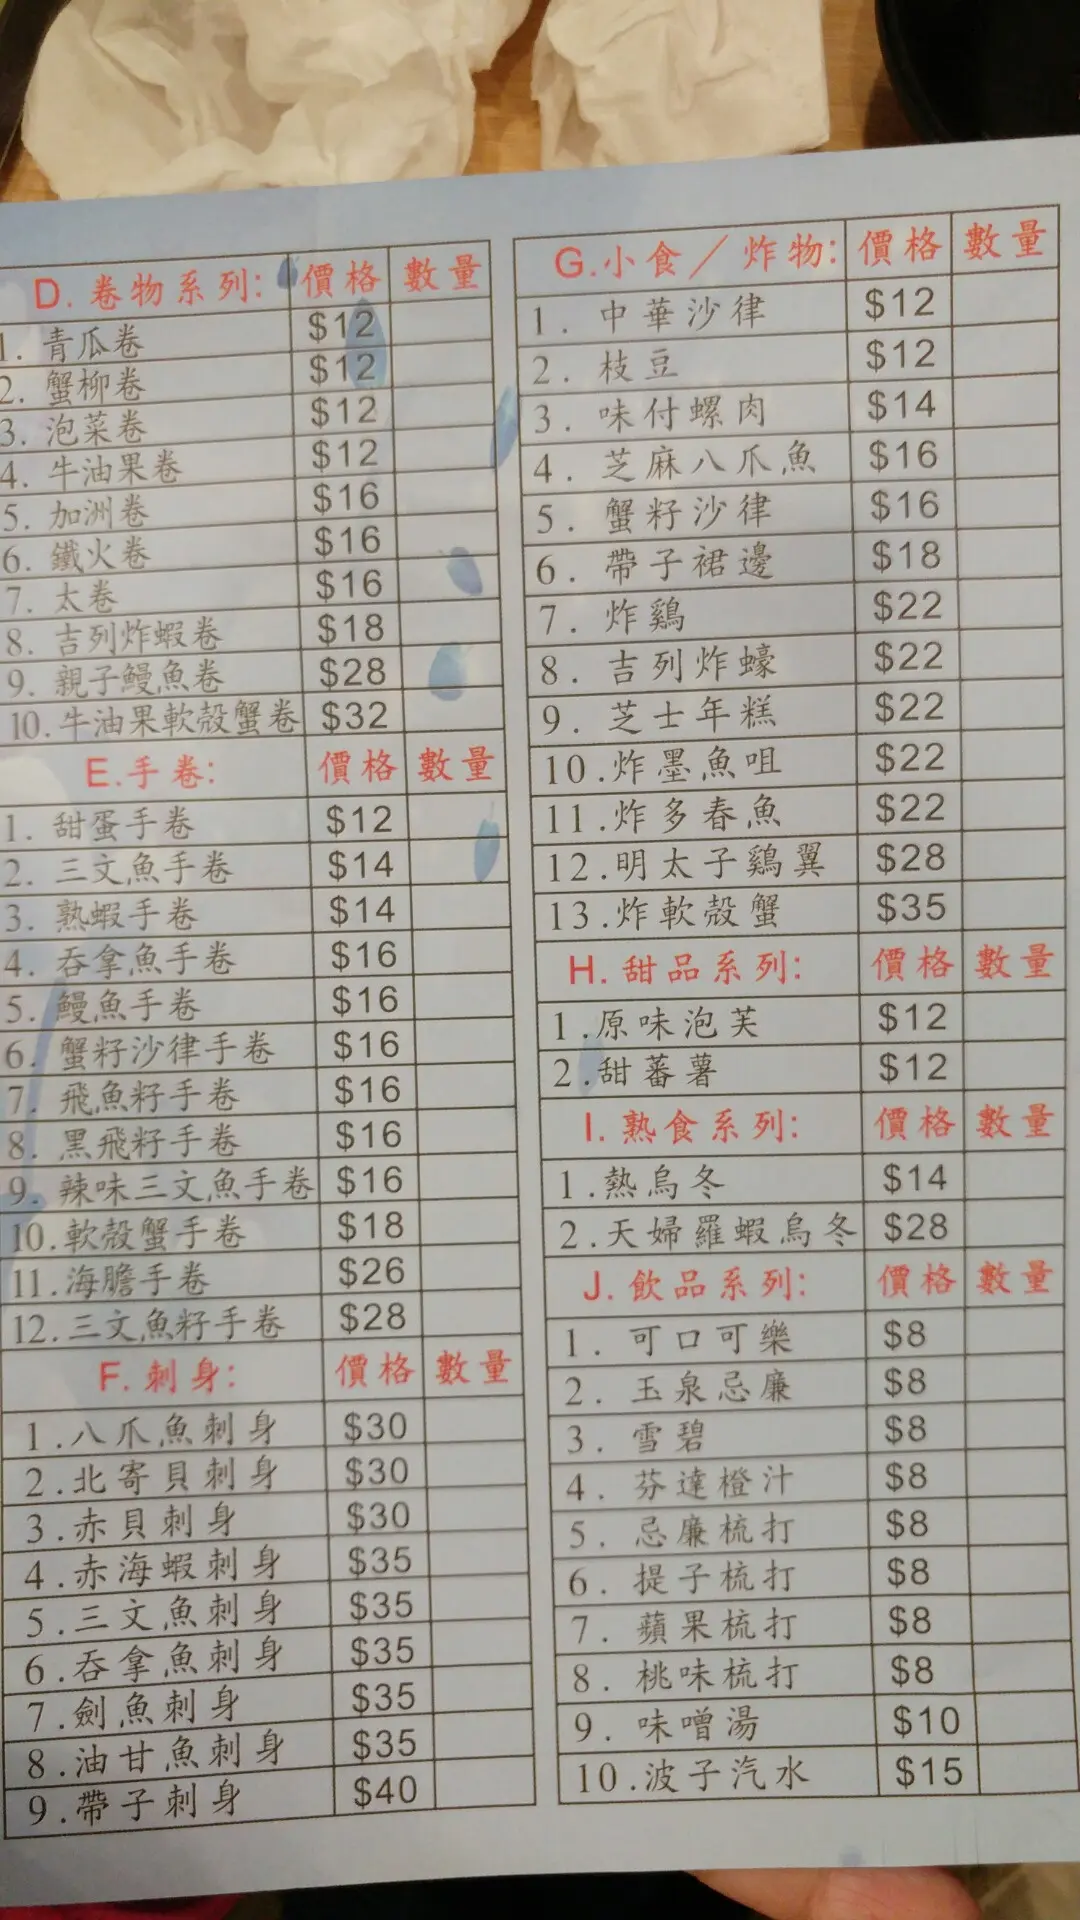 D. 卷物系列: 價格 數量
1. 青瓜卷 $12
2. 蟹柳卷 $12
3. 泡菜卷 $12
4. 牛油果卷 $12
5. 加洲卷 $16
6. 鐵火卷 $16
7. 太卷 $16
8. 吉列炸蝦卷 $18
9. 親子鰻魚卷 $28
10. 牛油果軟殼蟹卷 $32
E. 手卷: 價格 數量
1. 甜蛋手卷 $12
2. 三文魚手卷 $14
3. 熟蝦手卷 $14
4. 吞拿魚手卷 $16
5. 鰻魚手卷 $16
6. 蟹籽沙律手卷 $16
7. 飛魚籽手卷 $16
8. 黑飛籽手卷 $16
9. 辣味三文魚手卷 $16
10. 軟殼蟹手卷 $18
11. 海膽手卷 $26
12. 三文魚籽手卷 $28
F. 刺身: 價格 數量
1. 八爪魚刺身 $30
2. 北寄貝刺身 $30
3. 赤貝刺身 $30
4. 赤海蝦刺身 $35
5. 三文魚刺身 $35
6. 吞拿魚刺身 $35
7. 劍魚刺身 $35
8. 油甘魚刺身 $35
9. 帶子刺身 $40
G. 小食／炸物: 價格 數量
1. 中華沙律 $12
2. 枝豆 $12
3. 味付螺肉 $14
4. 芝麻八爪魚 $16
5. 蟹籽沙律 $16
6. 帶子裙邊 $18
7. 炸鷄 $22
8. 吉列炸蠔 $22
9. 芝士年糕 $22
10. 炸墨魚咀 $22
11. 炸多春魚 $22
12. 明太子鷄翼 $28
13. 炸軟殼蟹 $35
H. 甜品系列: 價格 數量
1. 原味泡芙 $12
2. 甜蕃薯 $12
I. 熟食系列: 價格 數量
1. 熱烏冬 $14
2. 天婦羅蝦烏冬 $28
J. 飲品系列: 價格 數量
1. 可口可樂 $8
2. 玉泉忌廉 $8
3. 雪碧 $8
4. 芬達橙汁 $8
5. 忌廉梳打 $8
6. 提子梳打 $8
7. 蘋果梳打 $8
8. 桃味梳打 $8
9. 味噌湯 $10
10. 波子汽水 $15